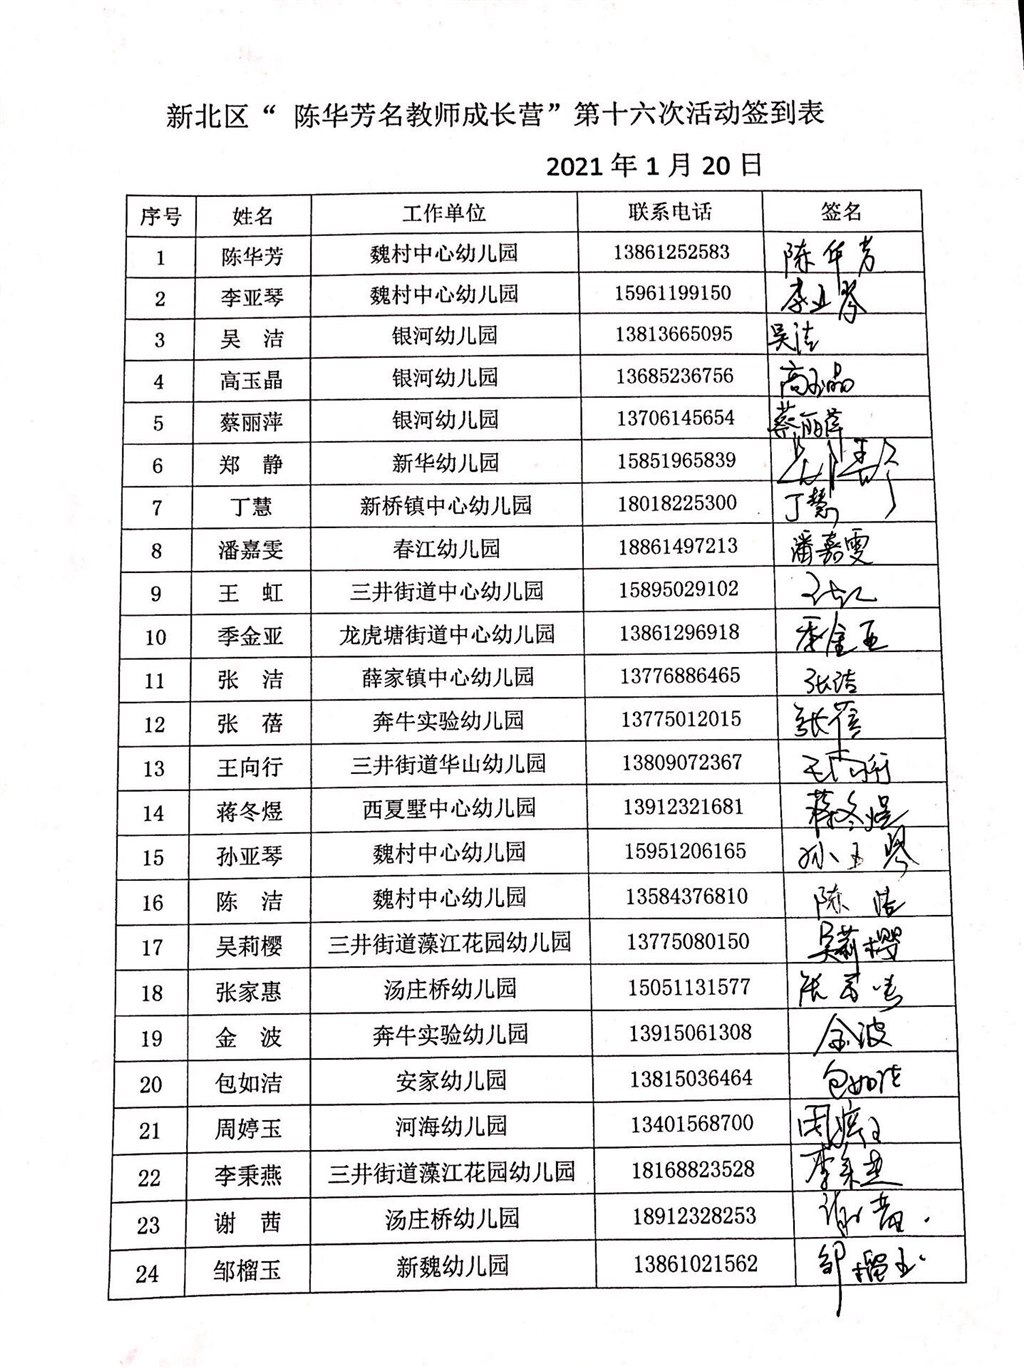 新北区“ 陈华芳名教师成长营”第十六次活动签到表
2021 年 1 月 20 日
序号 姓名 工作单位 联系电话 签名
1 陈华芳 魏村中心幼儿园 13861252583 陈华芳
2 李亚琴 魏村中心幼儿园 15961199150 李亚琴
3 吴 洁 银河幼儿园 13813665095 吴洁
4 高玉晶 银河幼儿园 13685236756 高玉晶
5 蔡丽萍 银河幼儿园 13706145654 蔡丽萍
6 郑 静 新华幼儿园 15851965839 郑静
7 丁慧 新桥镇中心幼儿园 18018225300 丁慧
8 潘嘉雯 春江幼儿园 18861497213 潘嘉雯
9 王 虹 三井街道中心幼儿园 15895029102 王虹
10 季金亚 龙虎塘街道中心幼儿园 13861296918 季金亚
11 张 洁 薛家镇中心幼儿园 13776886465 张洁
12 张 蓓 奔牛实验幼儿园 13775012015 张蓓
13 王向行 三井街道华山幼儿园 13809072367 王向行
14 蒋冬煜 西夏墅中心幼儿园 13912321681 蒋冬煜
15 孙亚琴 魏村中心幼儿园 15951206165 孙亚琴
16 陈 洁 魏村中心幼儿园 13584376810 陈洁
17 吴莉樱 三井街道藻江花园幼儿园 13775080150 吴莉樱
18 张家惠 汤庄桥幼儿园 15051131577 张家惠
19 金 波 奔牛实验幼儿园 13915061308 金波
20 包如洁 安家幼儿园 13815036464 包如洁
21 周婷玉 河海幼儿园 13401568700 周婷玉
22 李秉燕 三井街道藻江花园幼儿园 18168823528 李秉燕
23 谢 茜 汤庄桥幼儿园 18912328253 谢茜
24 邹榴玉 新魏幼儿园 13861021562 邹榴玉